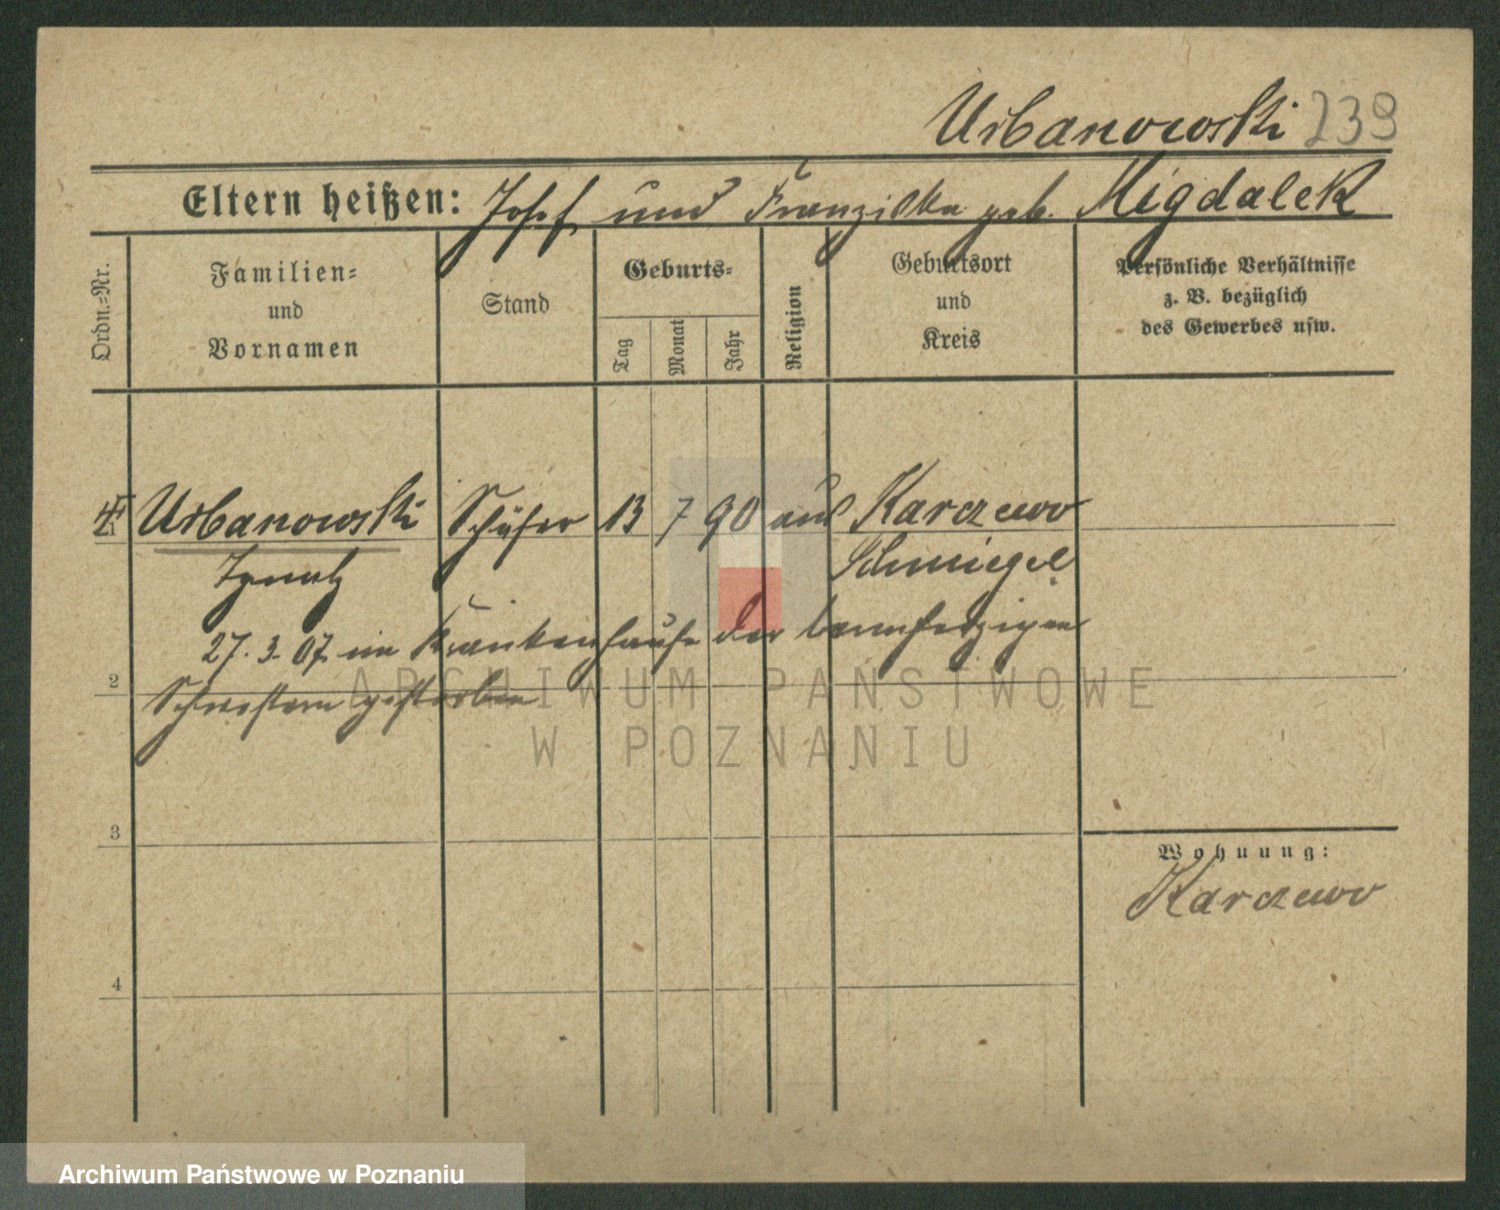 Urbanowski 239
Eltern heißen: Josef und Franziska geb. Migdalek
Ordn.-Nr.
Familien-
und
Vornamen
Stand
Geburts-
Tag
Monat
Jahr
Religion
Geburtsort
und
Kreis
Persönliche Verhältnisse
z. B. bezüglich
des Gewerbes usw.
Urbanowski Schäfer 13 7 90 Karczewo
Ignatz Schmiegel
27. 3. 07 im Krankenhause der barmherzigen
2
Schwestern gestorben
3
Wohnung:
Karczewo
4
ARCHIWUM PAŃSTWOWE
W POZNANIU
Archiwum Państwowe w Poznaniu